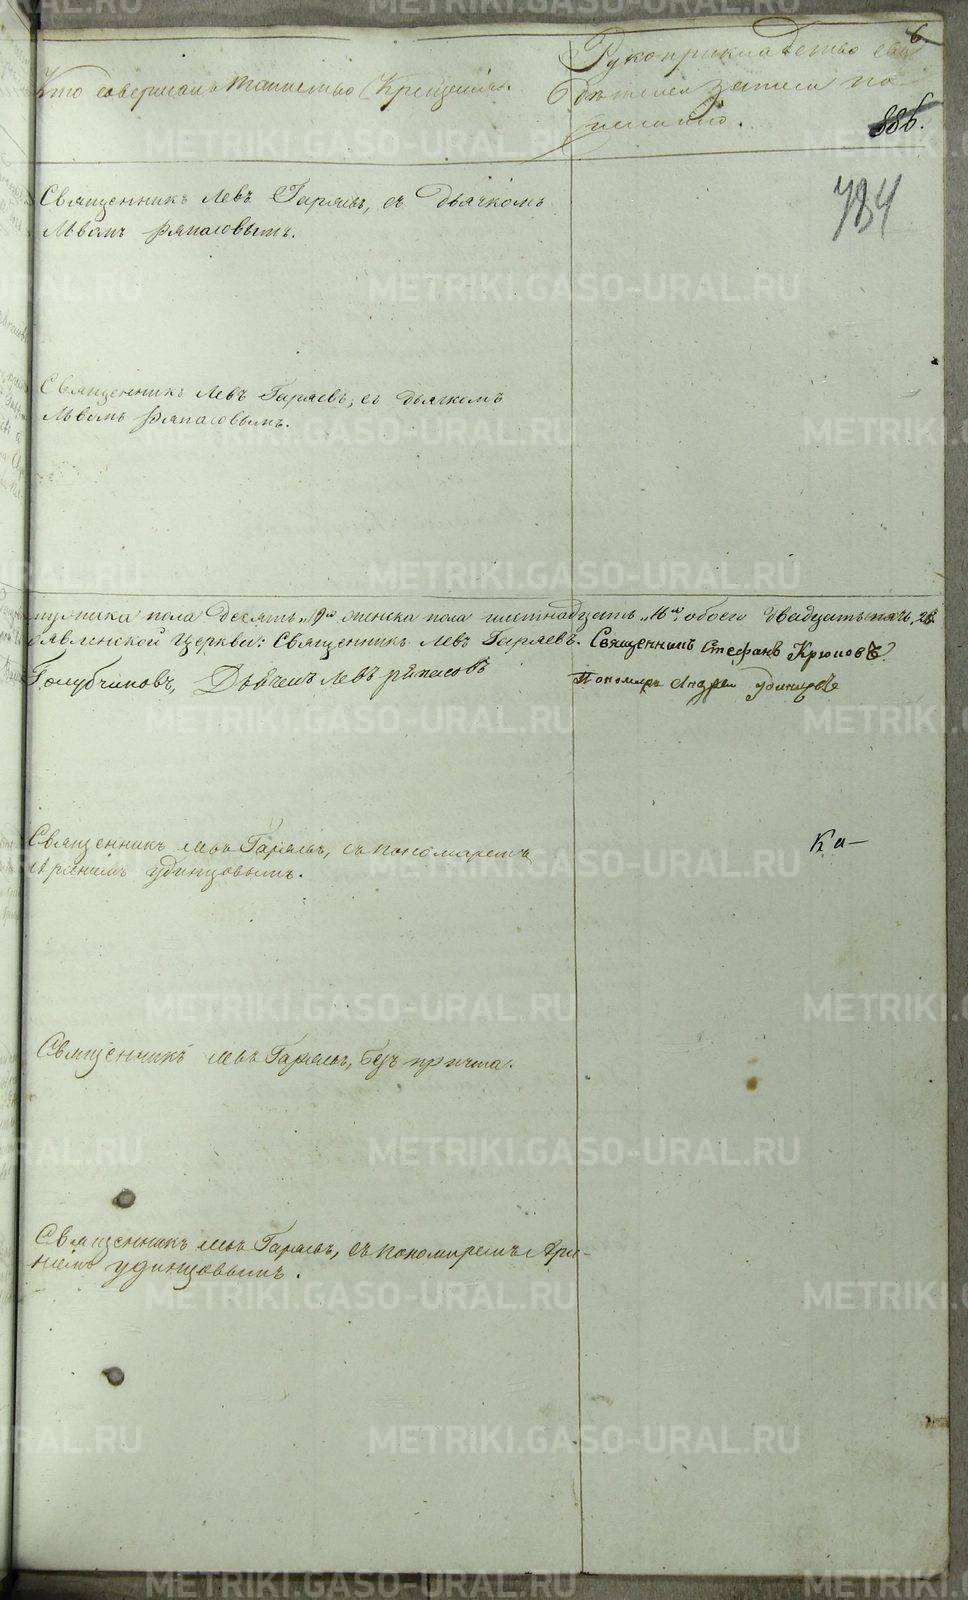 6.
Кто совершалъ таинство Крещенія.
Рукоприкладство сви
дѣтелей записи по
желанію.
886.
784
Священникъ Левъ Гаряевъ, съ Дьячкомъ
Львомъ Ряпасовымъ.
Священникъ Левъ Гаряевъ, съ Дьячкомъ
Львомъ Ряпасовымъ.
мужска пола Десять „10“ женска пола шестнадцать „16“, обоего Двадцать
Церкви: Священникъ Левъ Гаряевъ. Священникъ Стефанъ Крюковъ
Голубчиковъ, Дьячекъ Левъ Ряпасовъ
Пономарь Андрей Удинцовъ
Священникъ Левъ Гаряевъ, съ пономаремъ
Удинцовымъ.
Ка-
Священникъ Левъ Гаряевъ, безъ причта.
Священникъ Левъ Гаряевъ, съ пономаремъ
Удинцовымъ.
METRIKI.GASO-URAL.RU